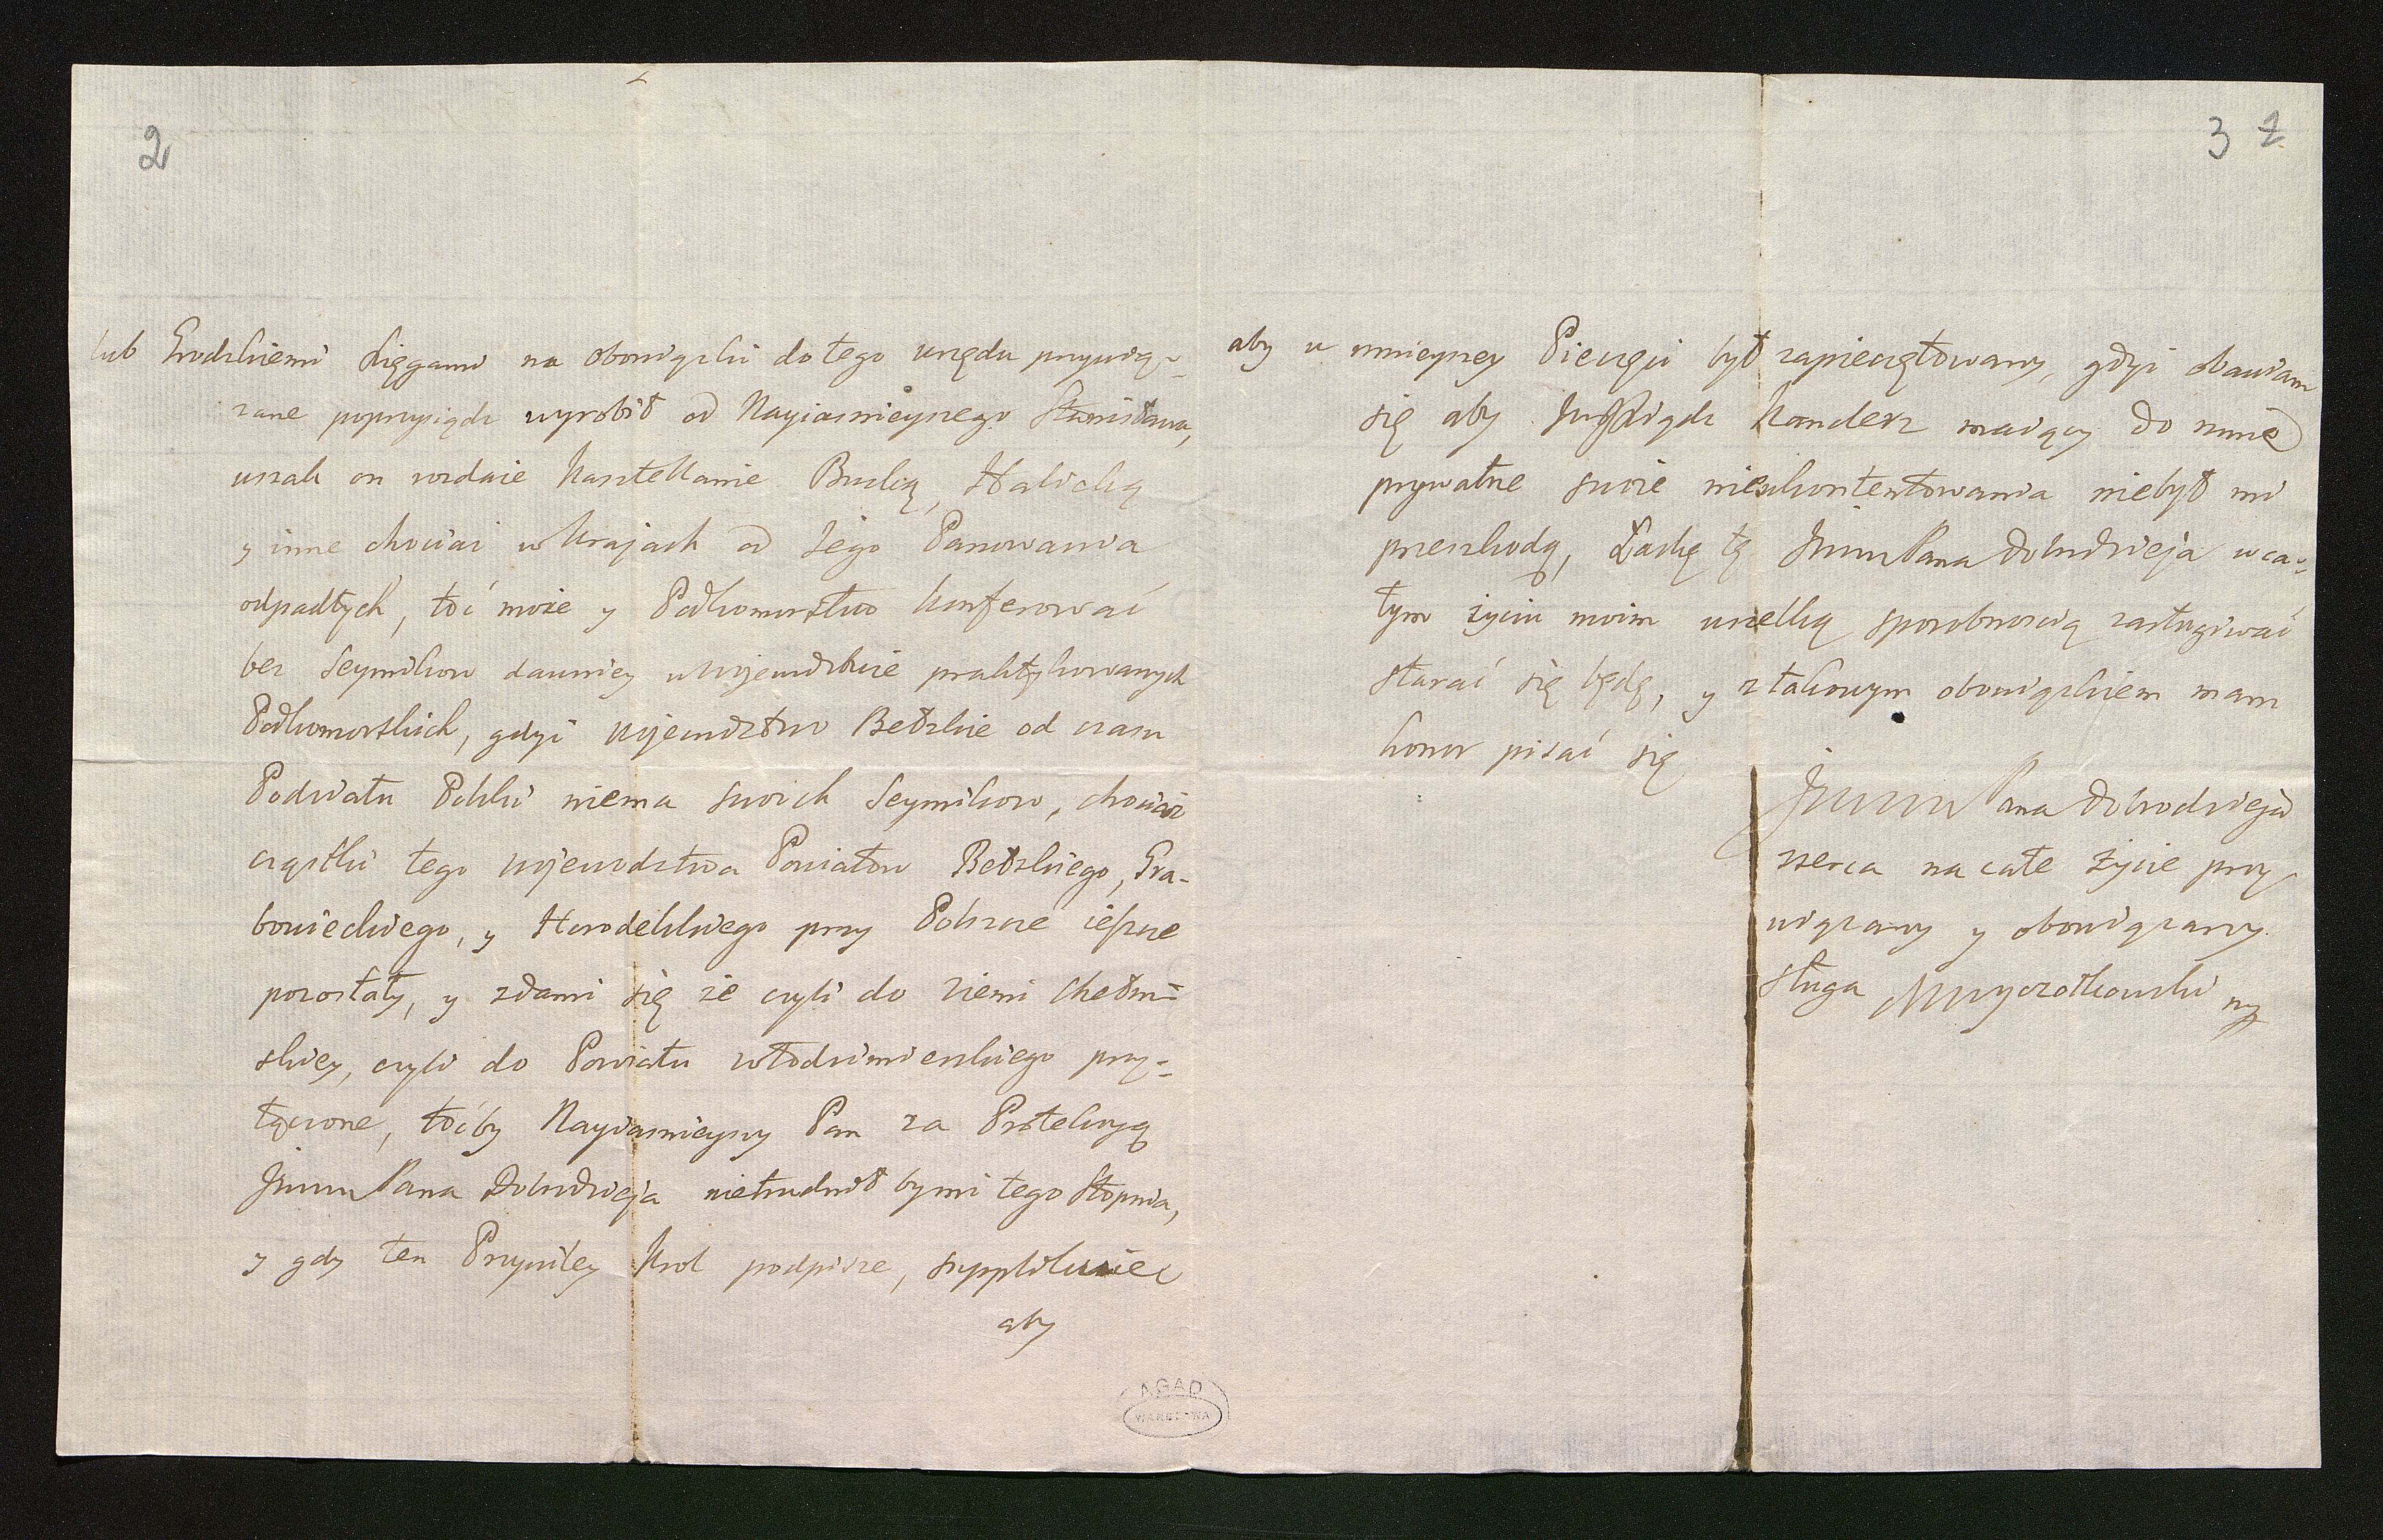 2
lub Grodzkiemi Xięgami na obowiązki do tego urzędu przywią-
zane poprzysiądz wyrobił od Nayiasnieyszego Stanisława,
wszak on rozdaie Kasztellanie Buską, Halicką
y inne chociaż w Krajach od Jego Panowania
odpadłych, toć może y Podkomorstwo konferować
bez Seymikow dawniey w Wojewodztwie praktykowanych
Podkomorskich, gdyż Wojewodztwo Bełzkie od czasu
Podziału Polski niema swoich Seymikow, chociaż
cząstki tego Wojewodztwa Powiatow Bełzkiego, Gra-
bowieckiego, y Horodelskiego przy Polszcze ieszcze
pozostały, y zdami się że czyli do ziemi Chełm-
skiey, czyli do Powiatu włodzimierskiego przy-
łączone, toćby Nayiasnieyszy Pan za Protekcyą
Jmm Pana Dobrodzieja nietrudnił bymi tego Stopnia,
y gdy ten Przywiley Krol podpisze, supplikuie
aby
AGAD
WARSZAWA
3 2
aby w mnieyszey Pieczęci był zapieczętowany, gdyż obawiam
się aby Xiądz Kanclerz maiący do mnie
prywatne swoie nieukontentowania niebył mi
przeszkodą, Łaskę tę Jmm Pana Dobrodzieja w ca-
łym życiu moim wszelką sposobnością zasługiwać
starać się będę, y z takowym obowiązkiem mam
honor pisać się
Jmm Pana Dobrodzieja
szerca na całe życie przy
wiązany y obowiązany
sługa Mrzyczotkowski